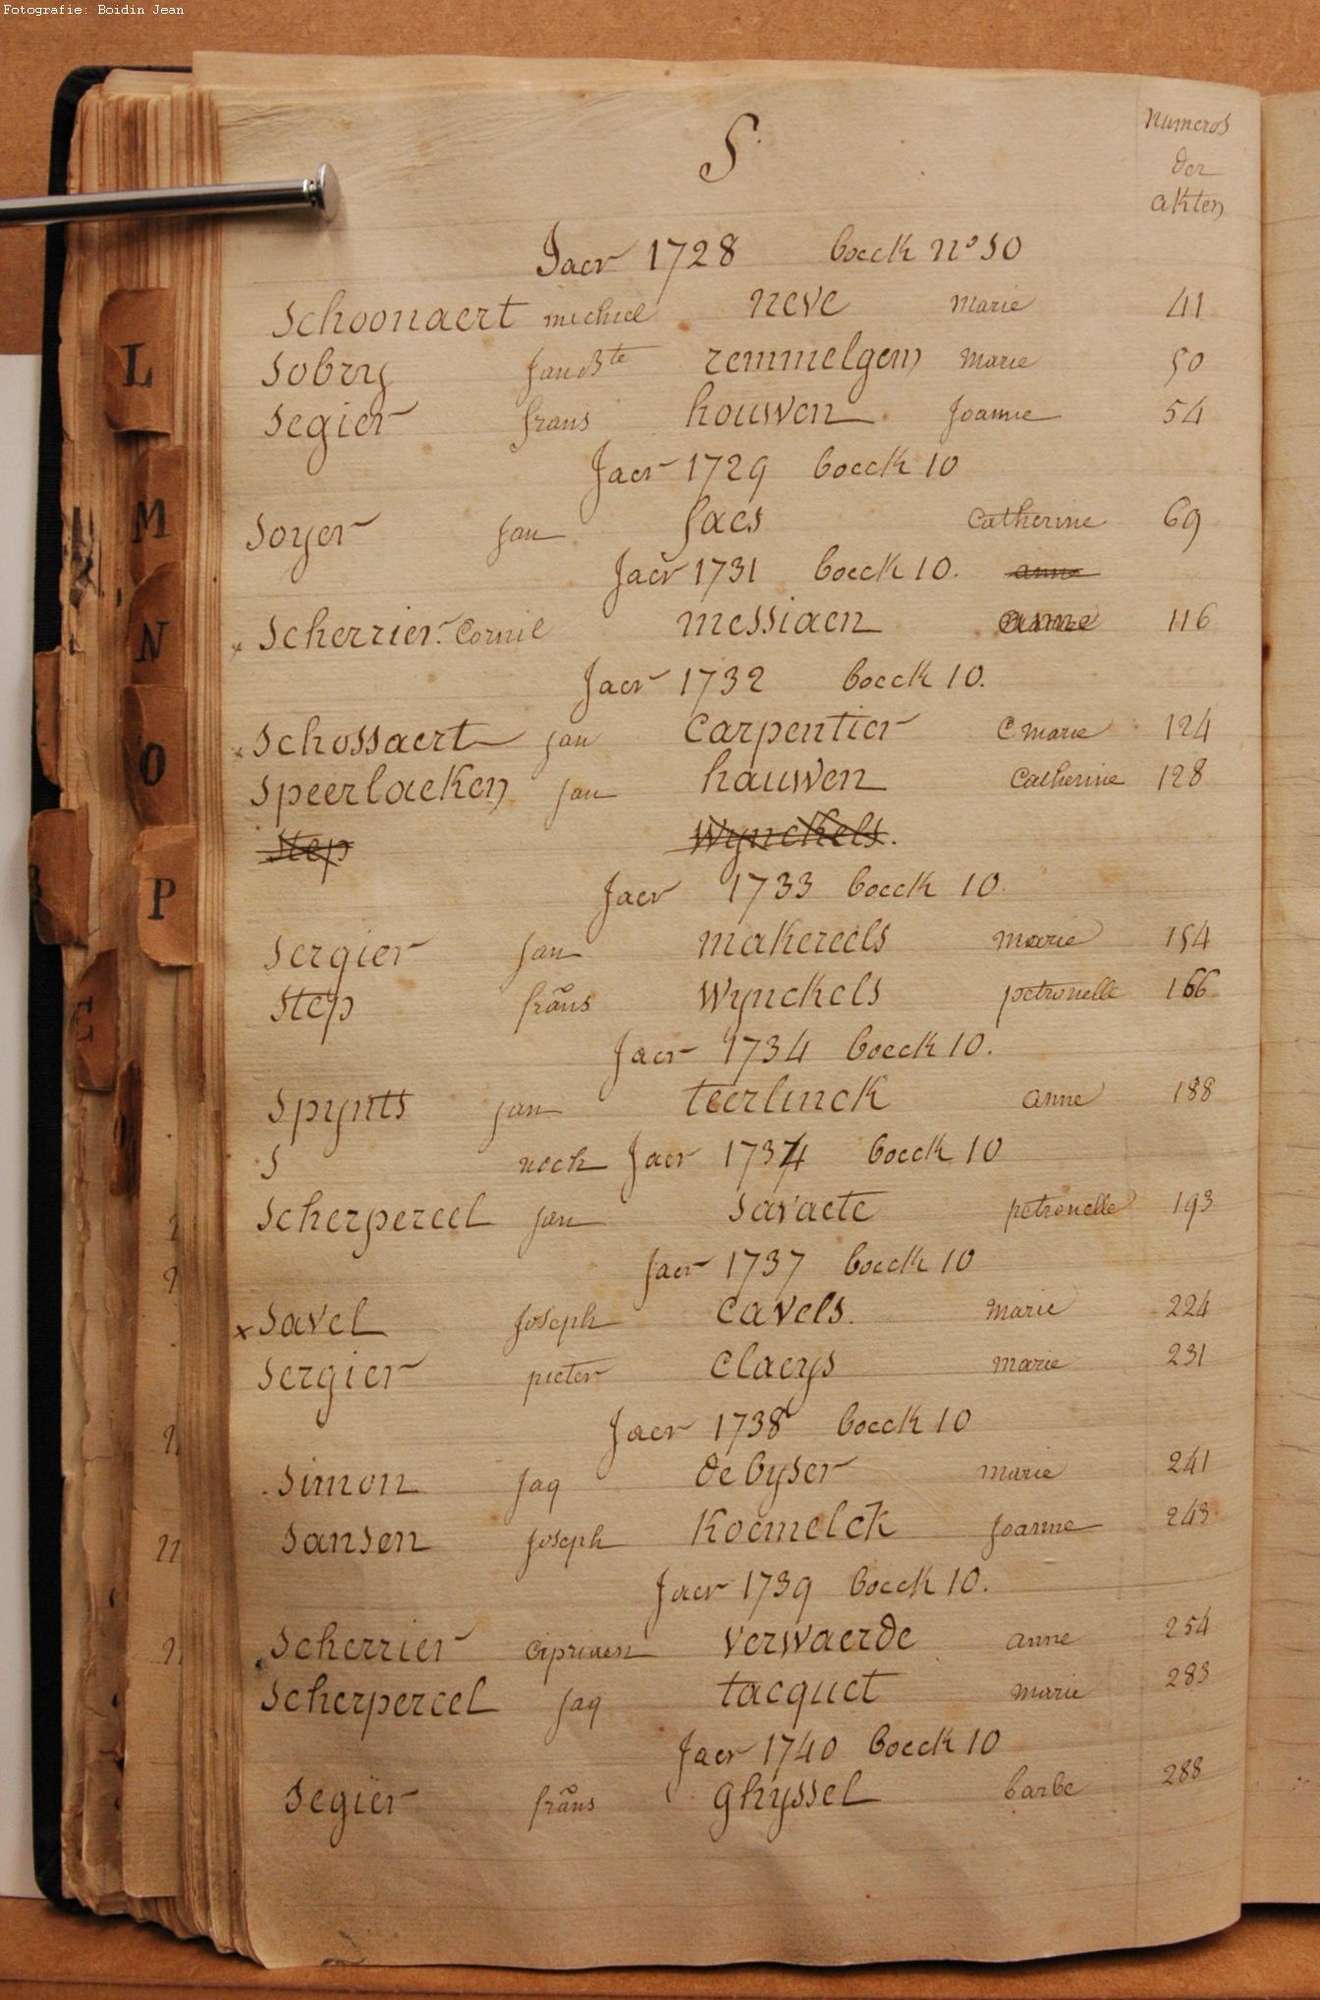 Fotografie: Boidin Jean
S
Numeros
der
akten
Jaer 1728 boeck nº 10
Schoonaert michiel neve Marie 41
Sobry Jan Bte remmelgem Marie 50
Segier frans houwen Joanne 54
Jaer 1729 boeck 10
Soyer Jan faes Catherine 69
Jaer 1731 boeck 10. anne
x Scherrier Cornil messiaen anne 116
Jaer 1732 boeck 10.
Schossaert jan Carpentier C marie 124
Speerlaeken jan hauwen Catherine 128
Step Wynckels.
Jaer 1733 boeck 10.
Sergier Jan makereels marie 154
Step frans Wynckels petronelle 166
Jaer 1734 boeck 10.
Spynts jan teerlinck anne 188
S noch Jaer 1734 boeck 10
Scherpereel jan Savaete petronelle 193
Jaer 1737 boeck 10
x Savel Joseph Cavels. marie 224
Sergier pieter Claeys marie 231
Jaer 1738 boeck 10
Simon Jaq de byser marie 241
Sansen Joseph Koemelck Joanne 243
Jaer 1739 boeck 10.
Scherrier Cipriaen verwaerde anne 254
Scherpereel Jaq tacquet marie 283
Jaer 1740 boeck 10
Segier frans ghyssel barbe 288
L
M
N
O
P